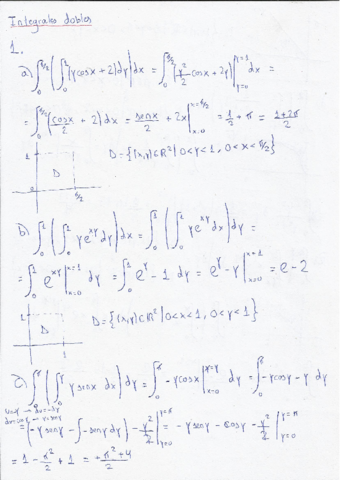 Integrales dobles
1.
a) ∫₀^{π/2} (∫₀^1 (y cosx + 2) dy) dx = ∫₀^{π/2} (y²/2 cosx + 2y) |_{y=0}^{y=1} dx =
= ∫₀^{π/2} (cosx/2 + 2) dx = senx/2 + 2x |_{x=0}^{x=π/2} = 1/2 + π = (1+2π)/2
D = {(x,y) ∈ ℝ² | 0<y<1, 0<x<π/2}
1
D
π/2
b) ∫₀^1 (∫₀^1 y e^{xy} dy) dx = ∫₀^1 (∫₀^1 y e^{xy} dx) dy =
= ∫₀^1 e^{xy} |_{x=0}^{x=1} dy = ∫₀^1 e^y - 1 dy = e^y - y |_{x=0}^{x=1} = e - 2
1
D
1
D = {(x,y) ∈ ℝ² | 0<x<1, 0<y<1}
c) ∫₀^π (∫₀^y y senx dx) dy = ∫₀^π -y cosx |_{x=0}^{x=y} dy = ∫₀^π -y cosy - y dy
= (-y seny - ∫ -seny dy) - y²/2 |_{y=0}^{y=π} = -y seny - cosy - y²/2 |_{y=0}^{y=π}
= 1 - π²/2 + 1 =